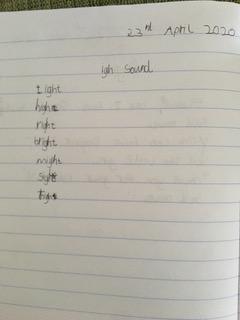 23rd April 2020
igh Sound
tight
high
right
bright
might
sight